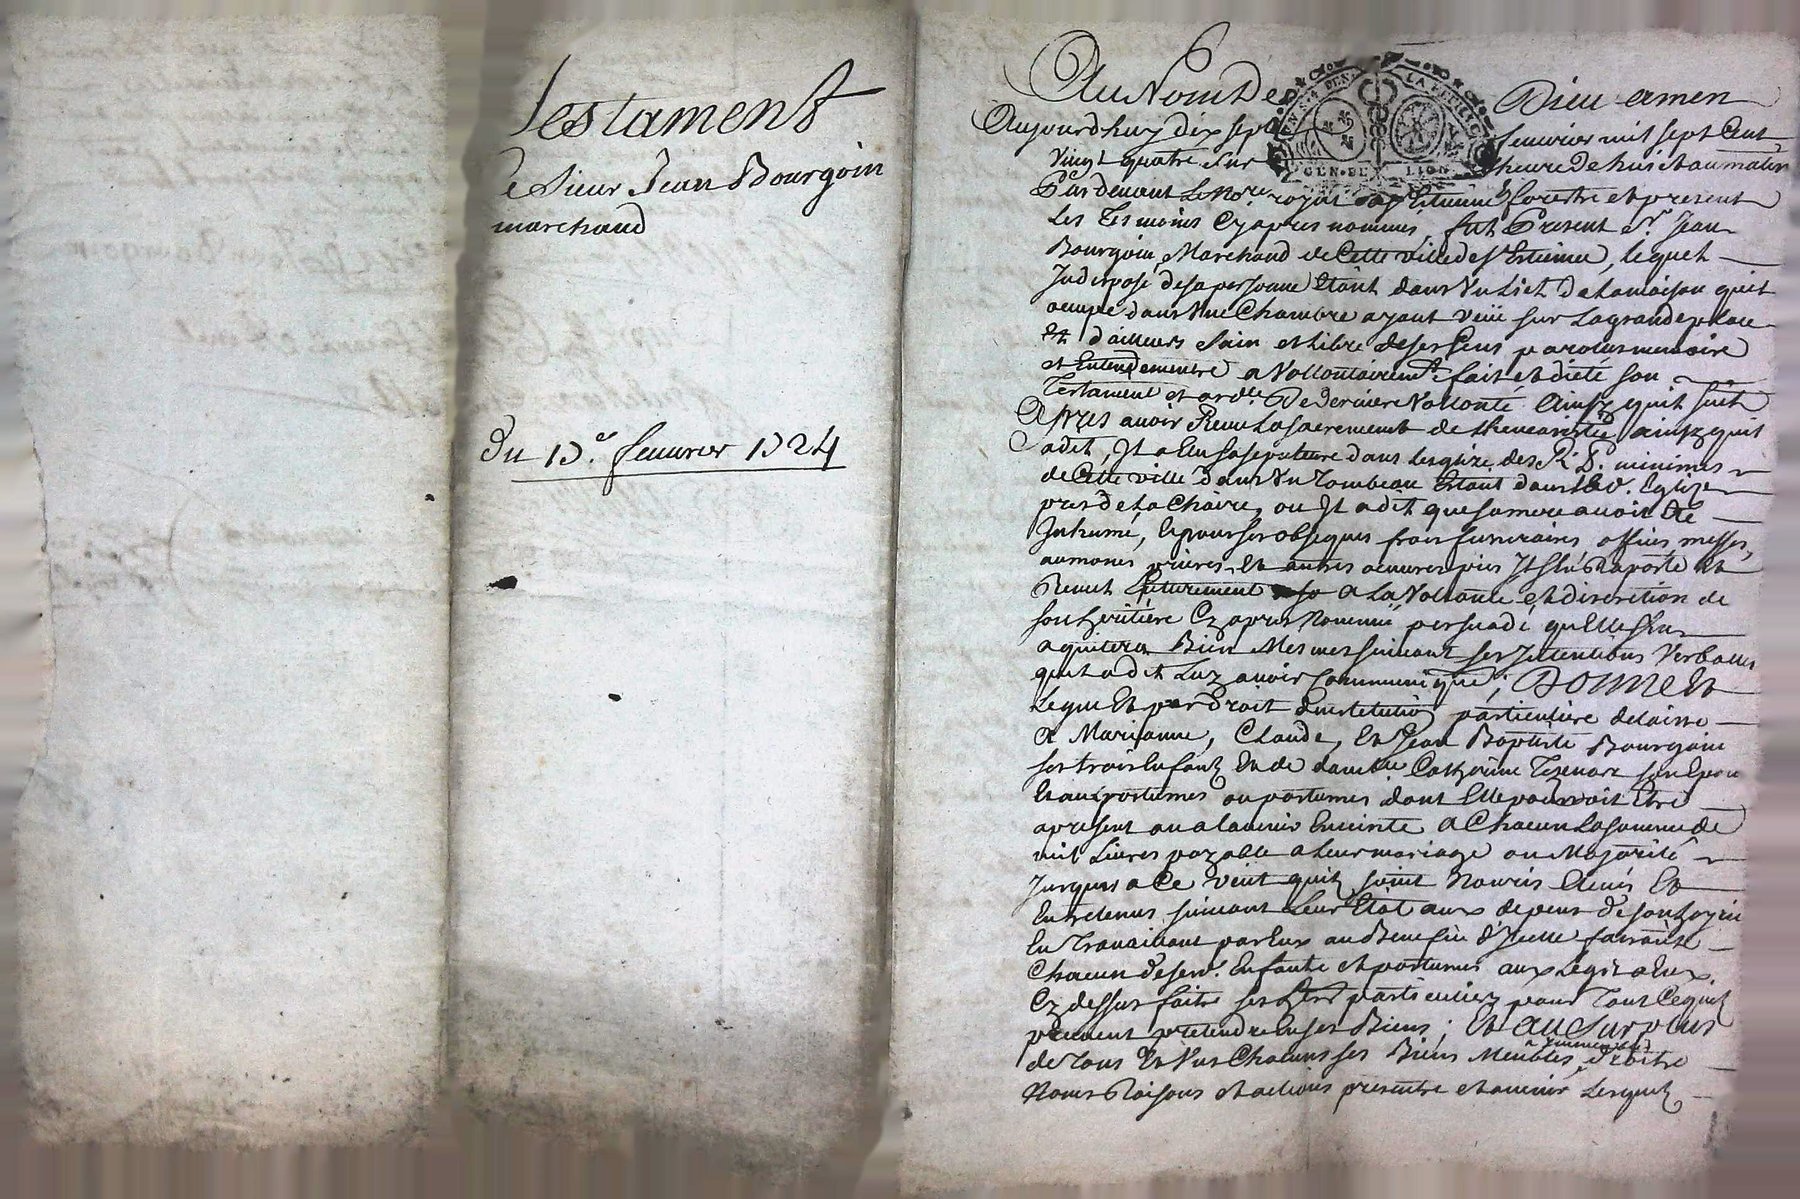 Testament
de sieur Jean Bourgoin
marchand
Du 17.e feuurier 1724
Au Nom De Dieu amen
Aujourdhuy dix sept feurier mil sept Cent
vingt quatre sur heure de huict au matin
Par deuant Le No.re royal Etienne et present
Les Tesmoins Cy apres nommés, fut Present S.r Jean
Bourgoin, Marchand de Cette ville de St Estienne, lequel
Indisposé de sa personne Etant dans Un Lict De La maison quil
ocupe dans Une Chambre ayant veüe sur La grande place
Et d'ailleurs sain et Libre de ses sens parolles memoire
et Entendement a Vollontairem.t fait et dicté son
Testament et ord.ce De derniere Vollonté Ainsy quil suit
Apres avoir Receu Le sacrement de Leucaristie ainsy quil
a dit, Il a Eleu sa sepulture dans Lesglize des R. P. minimes
de Cette ville Dans Un Tombeau Estant dans Lad. Eglize
pres de La Chaire, ou Il a dit que sa mere auoit Eté
Inhumé, Et pour ses obseques frais funeraires offices messes,
aumones prieres, Et autres oeuures pies Il s'En Raporte Et
Remet Entierement a La Vollonté et discretion de
son heritiere Cy apres Nommé persuadé qu'Elle s'En
aquitera Bien Mesmes suiuant ses Intentions Verballes
quil a dit Luy auoir Communiqué; Donne Et
Legue Et par Droit d'institution particuliere delaisse
A Marianne, Claude, Et Jean Baptiste Bourgoin
ses trois Enfants Et de dam.lle Catherine Tezenas son Epou
Et aux postumes ou postumes dont Elle pourroit Etre
apresent ou a l'auenir Enceinte a Chacun La somme de
mil Liures payable a Leur mariage ou Majorité
Jusques a Ce veut quils soint Nouris Et
Entretenus suiuant Leur Etat aux depens de son hoyrie
En Trauaillant par Eux au Benefice d'Icelle faisant
Chacun de sesd. Enfants et postumes aux Legits a Eux
Cy dessus faits ses her.s particuliers pour Tout Ce quils
peuuent pretendre En ses Biens; Et Au Surplus
de Tous Et Uns Chacuns ses Biens Meubles, immeubles Droits
Noms Raisons et actions presents et auenir Lesquels